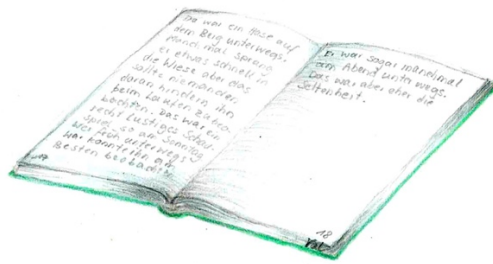 Da war ein Hase auf
dem Berg unterwegs.
Manchmal sprang
er etwas schnell in
die Wiese aber das
sollte niemanden
daran hindern ihn
beim Laufen zu beo-
bachten. Das war ein
recht lustiges Schau-
spiel so am Sonntag
früh unterwegs
konnte ihn am
Besten beobachten
Er war sogar manchmal
am Abend unterwegs.
Das war aber eher die
Seltenheit.
18